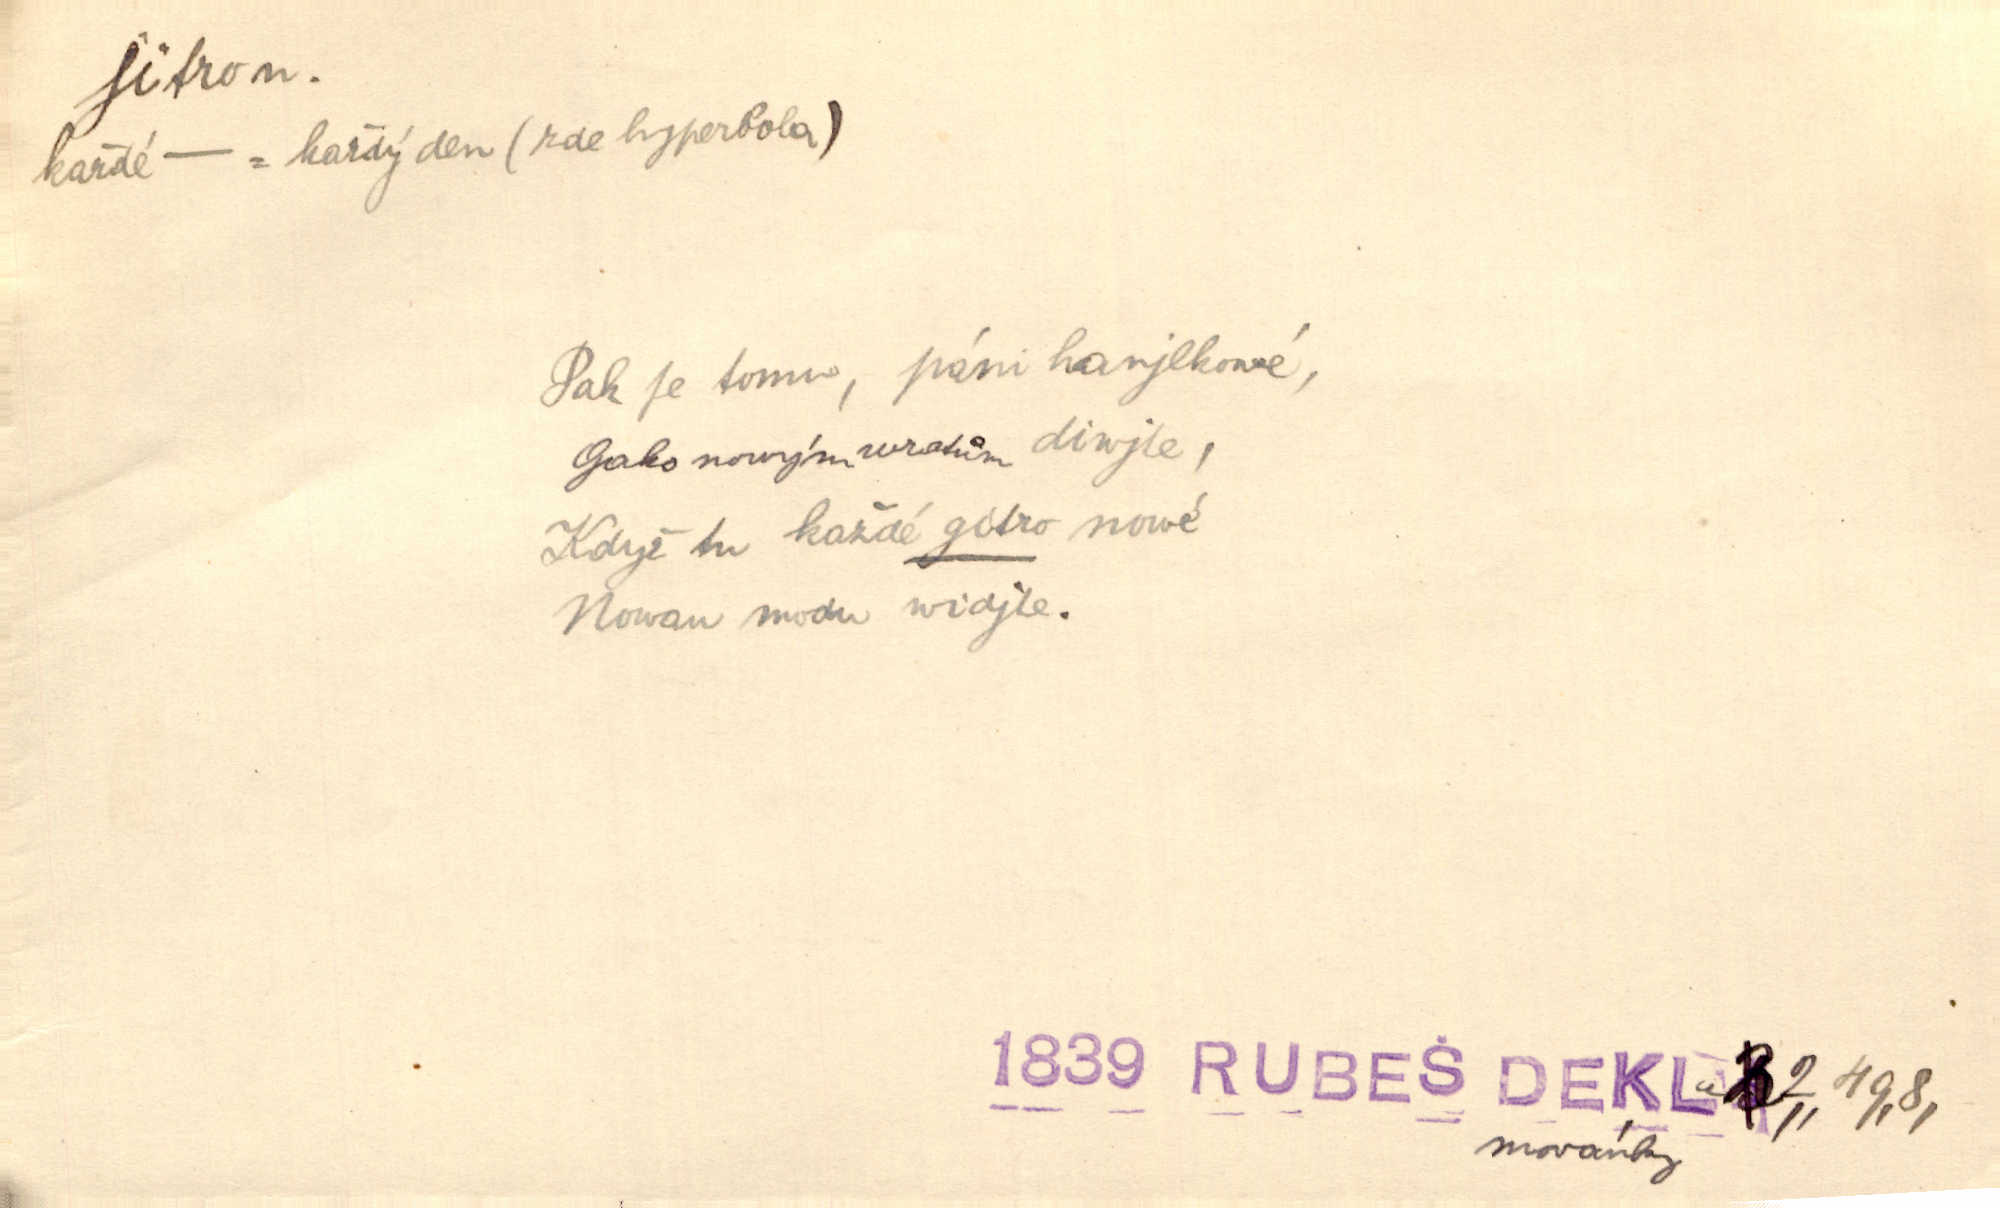 jitro n.
každé — = každý den (zde hyperbola)
Pak se tomu, páni hanjlkowé,
Gako nowým wratům diwjte,
Když tu každé gitro nowé
Nowau modu widjte.
1839 RUBEŠ DEKLa 2,, 49,8,
movánky